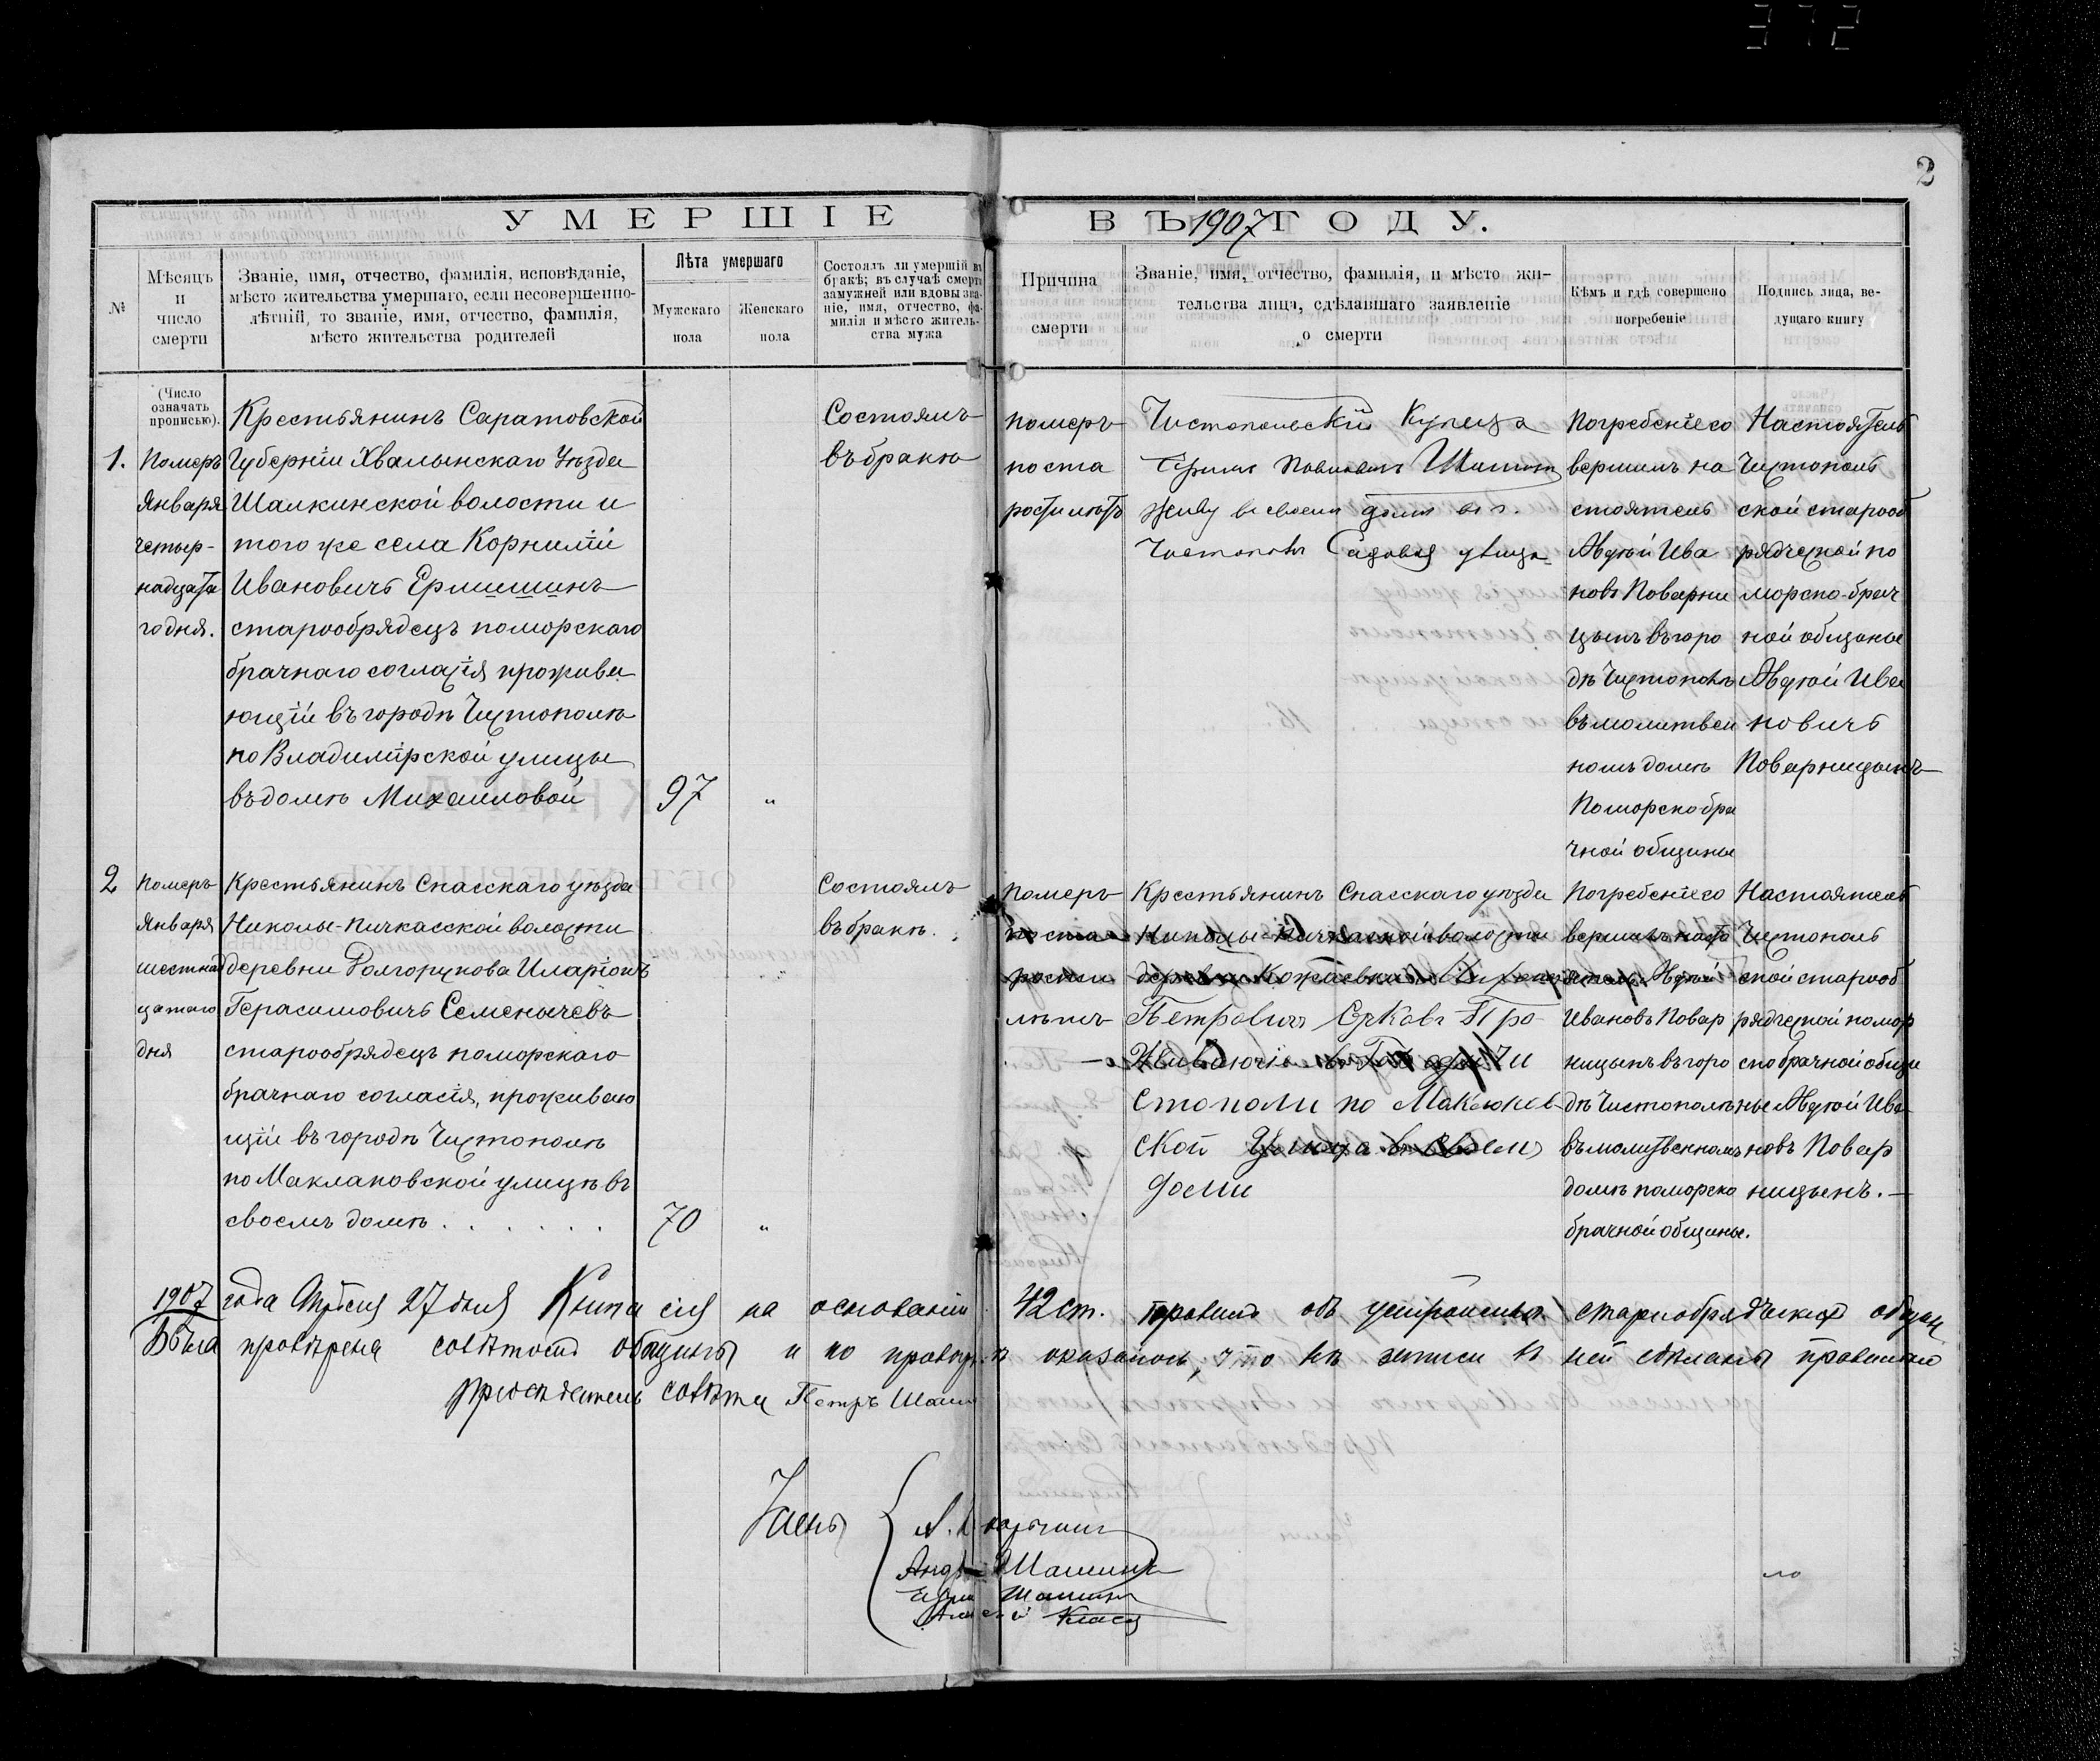 2
УМЕРШІЕ
ВЪ 1907 ГОДУ.
№
Мѣсяцъ
и
число
смерти
Званіе, имя, отчество, фамилія, исповѣданіе,
мѣсто жительства умершаго, если несовершенно-
лѣтній, то званіе, имя, отчество, фамилія,
мѣсто жительства родителей
Лѣта умершаго
Мужскаго
пола
Женскаго
пола
Состоялъ ли умершій въ
бракѣ; въ случаѣ смерти
замужней или вдовы зва-
ніе, имя, отчество, фа-
милія и мѣсто житель-
ства мужа
Причина
смерти
Званіе, имя, отчество, фамилія, и мѣсто жи-
тельства лица, сдѣлавшаго заявленіе
о смерти
Кѣмъ и гдѣ совершено
погребеніе
Подпись лица, ве-
дущаго книгу
(Число
означать
прописью).
1.
Померъ
Января
четыр-
надцата
го дня.
Крестьянинъ Саратовской
Губерніи Хвалынскаго Уѣзда
Шалкинской волости и
того же села Корнилій
Ивановичъ Ермишинъ
старообрядецъ поморскаго
брачнаго согласія прожива
ющій въ городѣ Чистополѣ
по Владимірской улицы
въ домѣ Михаиловой
97
"
Состоялъ
въ бракѣ
померъ
по ста
рости лѣтъ
Чистопольскій Купеца
Павловичъ Шашинъ
живу въ своемъ доми въ г.
Чистополь Садовая улица
Погребеніе со
вершилъ на
стоятель
Авдѣй Ива
новъ Поварни
цынъ въ горо
дѣ Чистополѣ
въ молитвен
номъ домѣ
Поморско бра
чной общины
Настоятель
Чистополь
ской старооб
рядческой по
морско-брач
ной общины
Авдѣй Ива
новичъ
Поварницынъ
2
померъ
Января
шестнад
цатаго
дня
Крестьянинъ Спасскаго уѣзда
Николы-Пичкасской волости
деревни Долгорукова Иларіонъ
Герасимовичъ Семенычевъ
старообрядецъ поморскаго
брачнаго согласія, проживаю
щій въ городѣ Чистополѣ
по Маклаковской улицѣ въ
своемъ домѣ . . . . . .
70
"
Состоялъ
въ бракѣ.
померъ
по ста
рости
лѣтъ
Крестьянинъ Спасскаго уѣзда
Николы-Пичкасской волости
Петровичъ Про
Чи
стополи по
ской Улица въ своем
доми
Погребеніе со
вершилъ насто
ятель Авдѣй
Ивановъ Повар
ницынъ въ горо
дѣ Чистополѣ
въ молитвенномъ
домѣ поморско
брачной общины.
Настоятель
Чистополь
ской старооб
рядческой помор
ско брачной общи
ны Авдѣй Ива
новъ Повар
ницынъ.
1907 года Апрѣля 27 дня Книга сія на основаніи 42 ст. правилъ объ устройствѣ старообрядческих общин
Была провѣрена совѣтомъ общины и по провѣркѣ оказалось, что всѣ записи в ней сдѣланы правильно
предсѣдатель совѣта Петръ Шашин
Члены
Шашинъ
Шашинъ